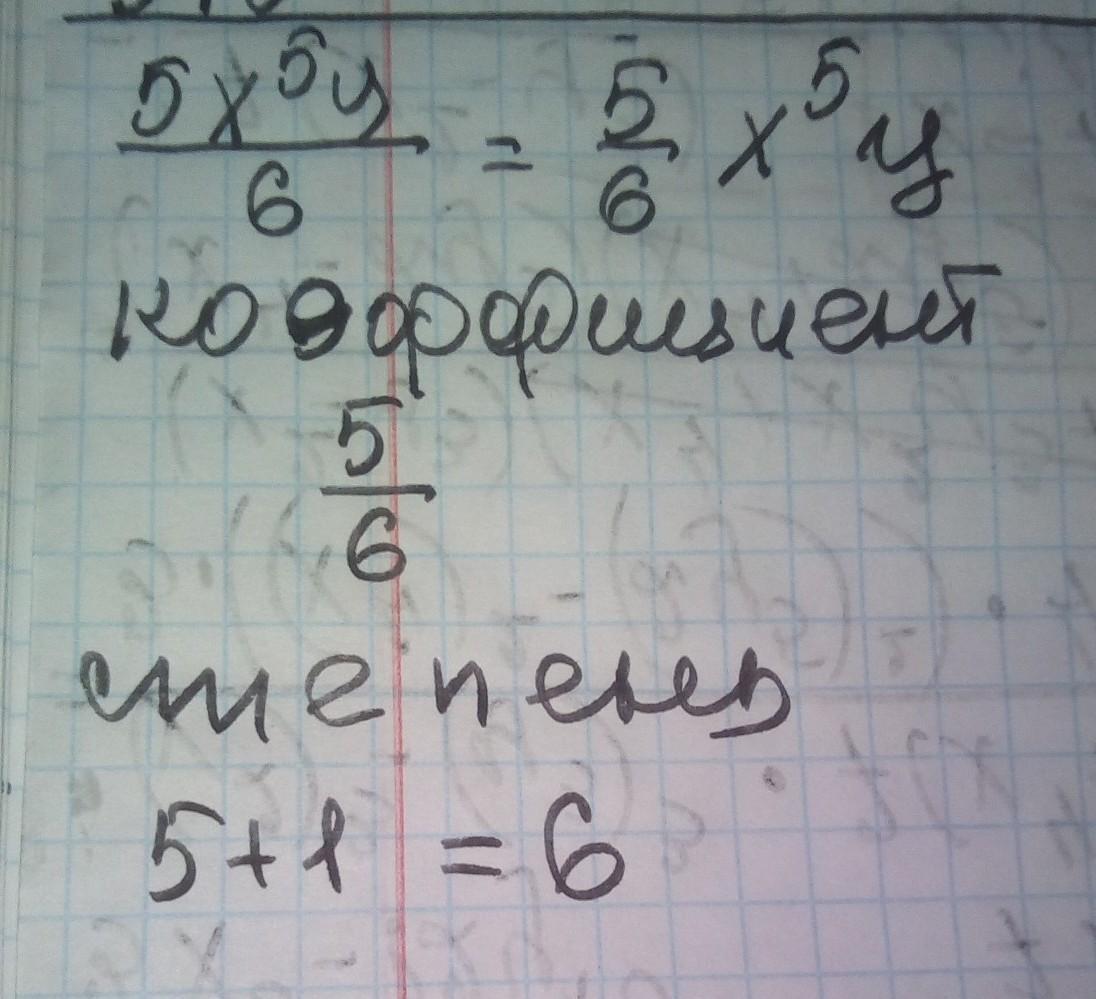 5x⁵y/6 = 5/6 x⁵y
коэффициент
5/6
степень
5+1 = 6